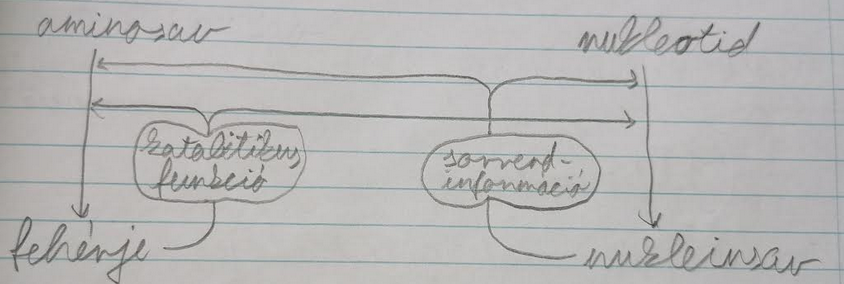 aminosav
nukleotid
katalitikus
funkció
sorrend-
információ
fehérje
nukleinsav